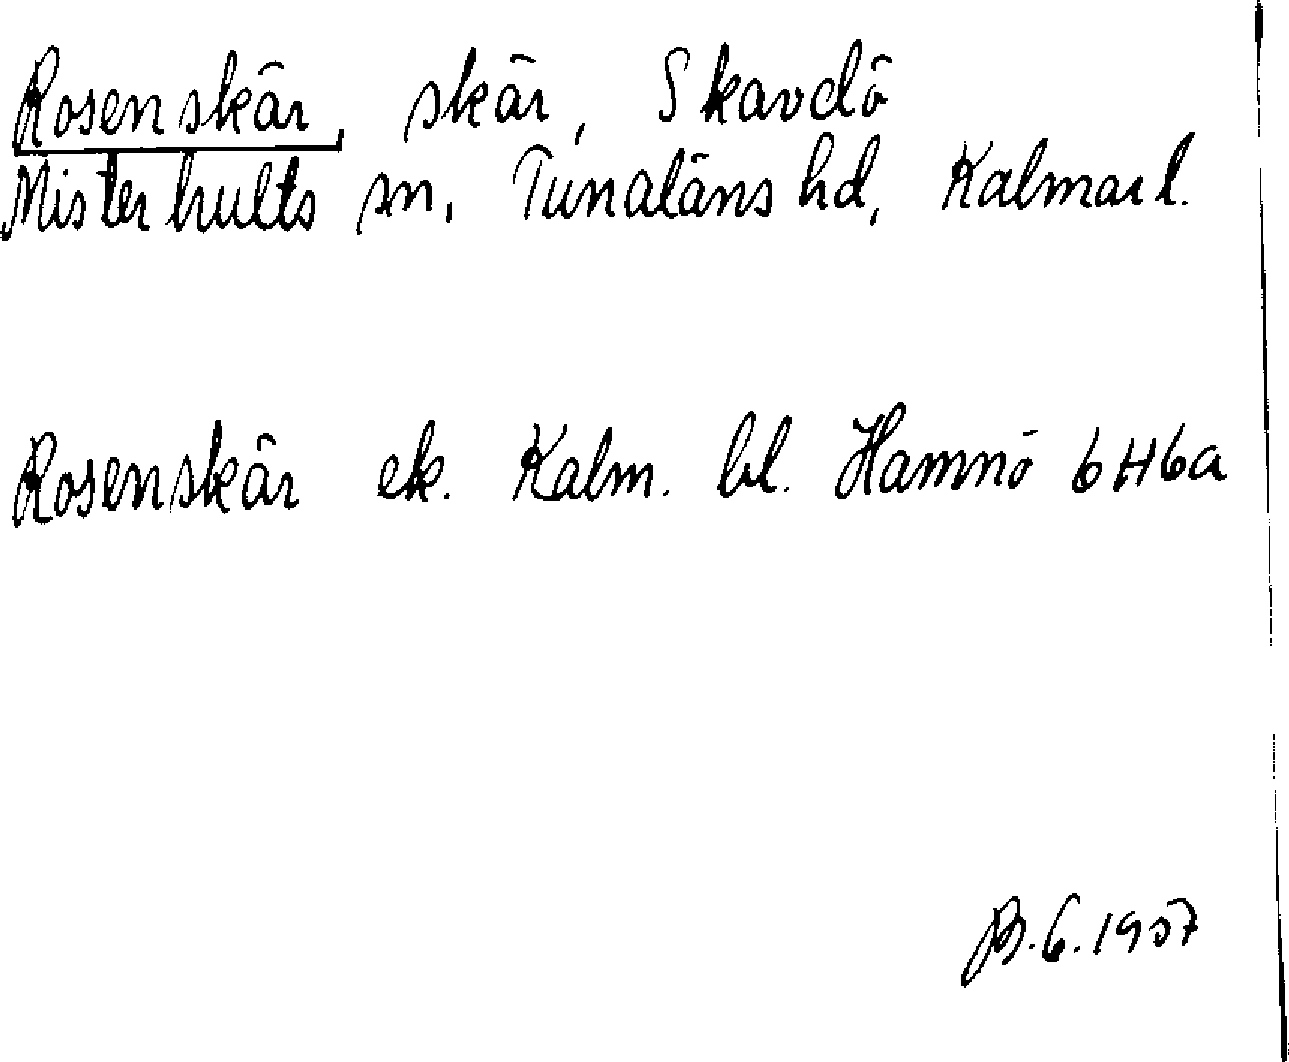 Rosenskär, skär, Skavdö
Misterhults sn, Tunaläns hd, Kalmar l.
Rosenskär ek. Kalm. bl. Hamnö 6H6a
B.G. 1957